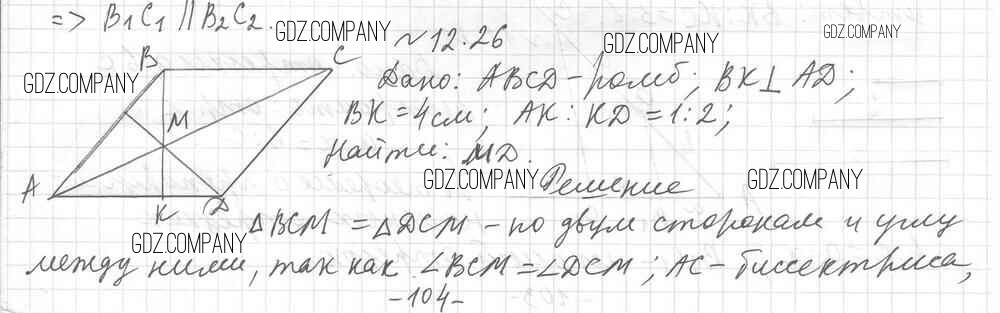 => B₁C₁ || B₂C₂.
GDZ.COMPANY
N 12.26
GDZ.COMPANY
GDZ.COMPANY
B
C
GDZ.COMPANY
Дано: ABCD - ромб; BK⊥AD;
BK = 4 см; AK : KD = 1:2;
M
Найти: MD.
A
GDZ.COMPANY
Решение
GDZ.COMPANY
K
D
△BCM = △DCM - по двум сторонам и углу
GDZ.COMPANY
между ними, так как ∠BCM = ∠DCM; AC - биссектриса,
-104-